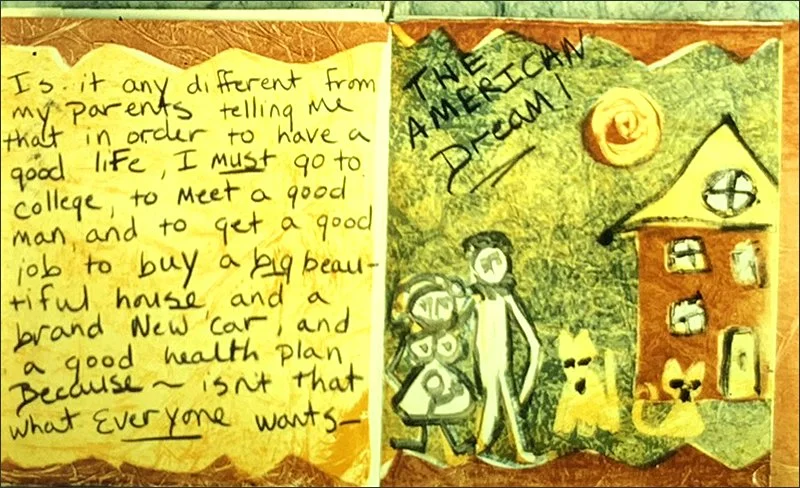 Is it any different from
my parents telling me
that in order to have a
good life, I must go to
college, to meet a good
man, and to get a good
job to buy a big beau-
tiful house and a
brand New car, and
a good health plan
Because ~ isn't that
what EverYone wants—
THE
AMERICAN
Dream!